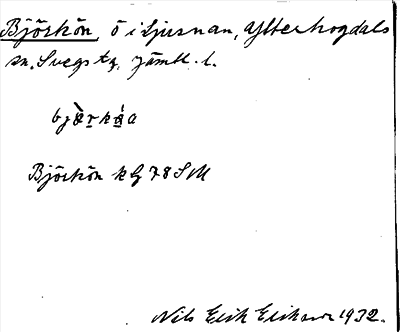 Björkön, ö i Ljusnan, Ytterhogdals
sn. Svegs tg. Jämtl. l.
bjœ̀rkáa
Björkön kG 78 SM
Nils Erik Erikson 1932.